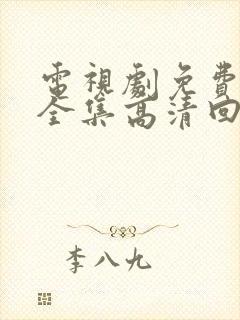 電視劇免費
全集高清回
李八九